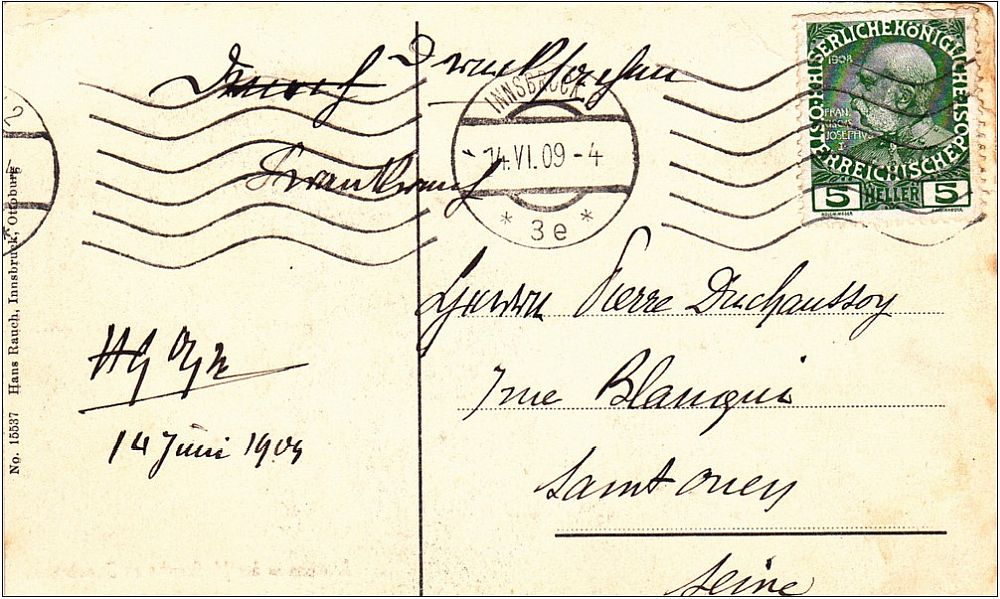 Drucksachen
Frankreich
INNSBRUCK
14.VI.09-4
* 3e *
KAISERLICHE KÖNIGLICHE
ÖSTERREICHISCHE POST
1908
FRAN
CISCVS
JOSEPH I
5 HELLER 5
Herrn Pierre Duchaussoy
7 rue Blanqui
Saint Ouen
Seine
14 Juni 1909
No. 15537 Hans Rauch, Innsbruck, Ottoburg
2